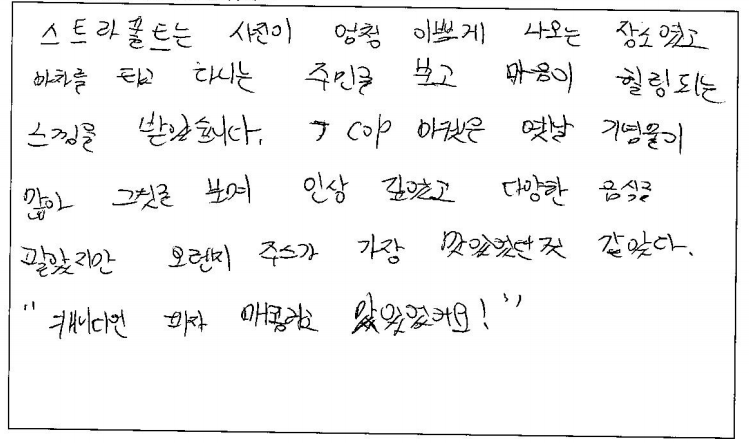 스트라폴트는 사진이 엄청 이쁘게 나오는 장소였고
마차를 타고 다니는 주민을 보고 마음이 힐링되는
느낌을 받았습니다. J cop 마켓은 옛날 기념물이
많아 그것을 보며 인상 깊었고 다양한 음식을
팔았지만 오렌지 주스가 가장 맛있었던 것 같았다.
"캐니디언 피자 매콤하고 맛있었어요!"